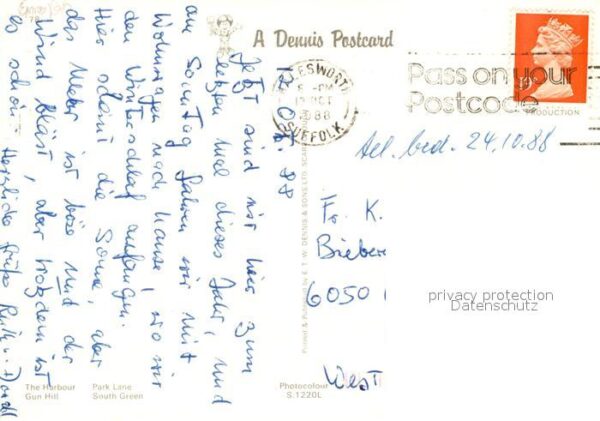 A Dennis Postcard
HALESWORTH
6 - PM
OCT
1988
SUFFOLK
Pass on your
Postcode
19
PRODUCTION
Tel. bed. 24.10.88
88
Jetzt sind wir hier zum
letzten Mal dieses Jahr, und
am Sonntag fahren wir mit
Wohnwagen nach Hause, wo wir
den Winterschlaf anfangen.
Hier scheint die Sonne, aber
das Meer ist böse und der
Wind bläst, aber trotzdem ist
es schön. Herzliche Grüße
Fr. K.
Bieber
6050
West
privacy protection
Datenschutz
The Harbour Park Lane
Gun Hill South Green
Photocolour
S.1220L
Printed & Published by E. T. W. DENNIS & SONS LTD.